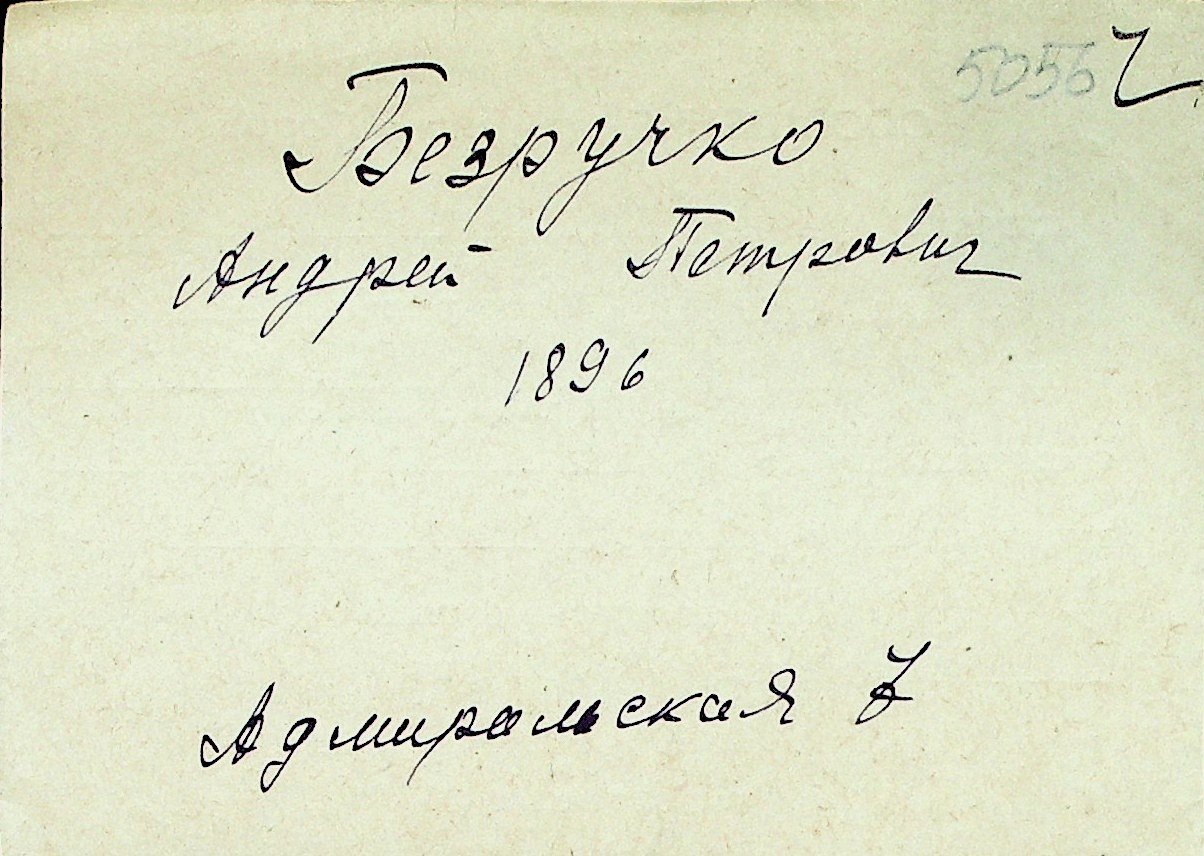 5056 ч
Безручко
Андрей Петрович
1896
Адмиральская 7